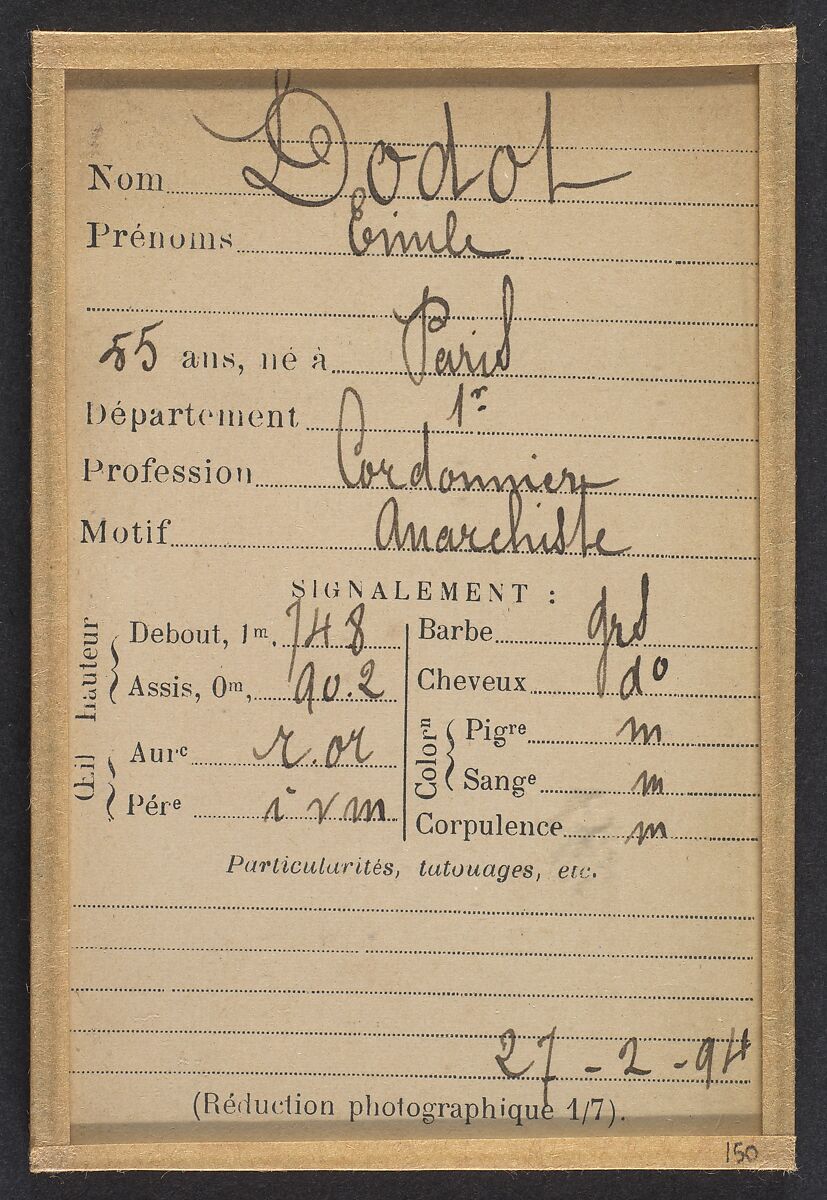 Nom Dodot
Prénoms Emile
55 ans, né à Paris
Département 1r
Profession Cordonnier
Motif Anarchiste
SIGNALEMENT :
hauteur
Debout, 1m, 748
Assis, 0m, 90.2
Œil
Aurᵉ r. or
Péreᵉ i v m
Barbe grs
Cheveux do
Colorn
Pigre m
Sange m
Corpulence m
Particularités, tatouages, etc.
27 - 2 - 94
(Réduction photographique 1/7).
150